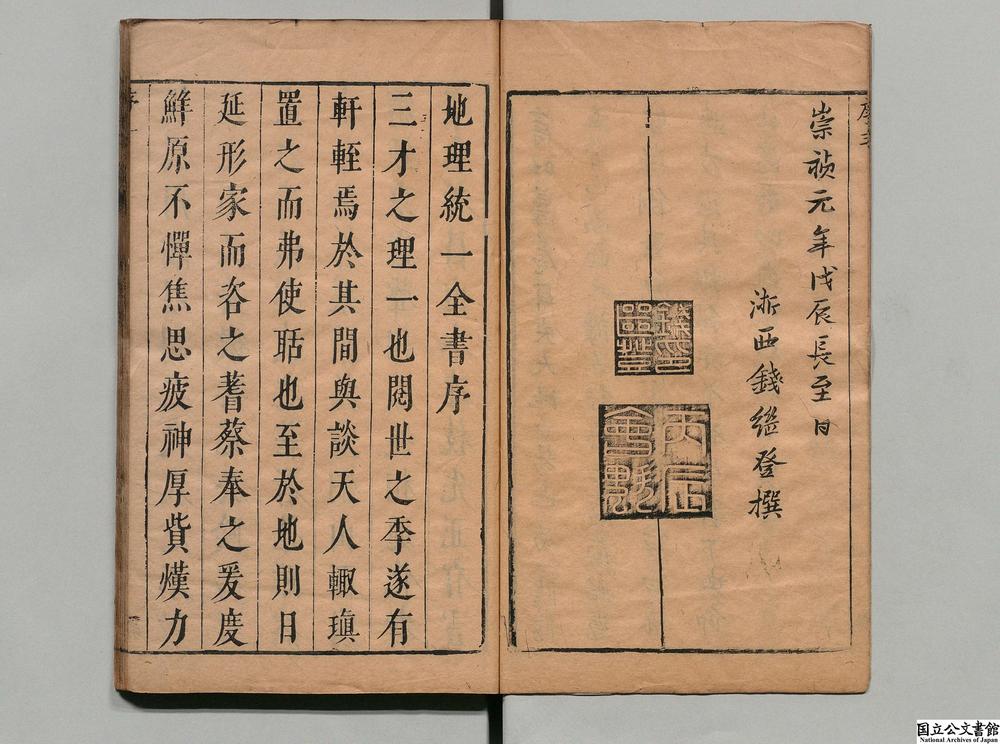 崇禎元年戊辰長至日
浙西錢繼登撰
錢繼登印
丙辰會魁
地理統一全書序
三才之理一也閱世之季遂有
軒輊焉於其間與談天人輙瑱
置之而弗使聒也至於地則日
延形家而咨之蓍蔡奉之爰度
鮮原不憚焦思疲神厚貲熯力
国立公文書館
National Archives of Japan